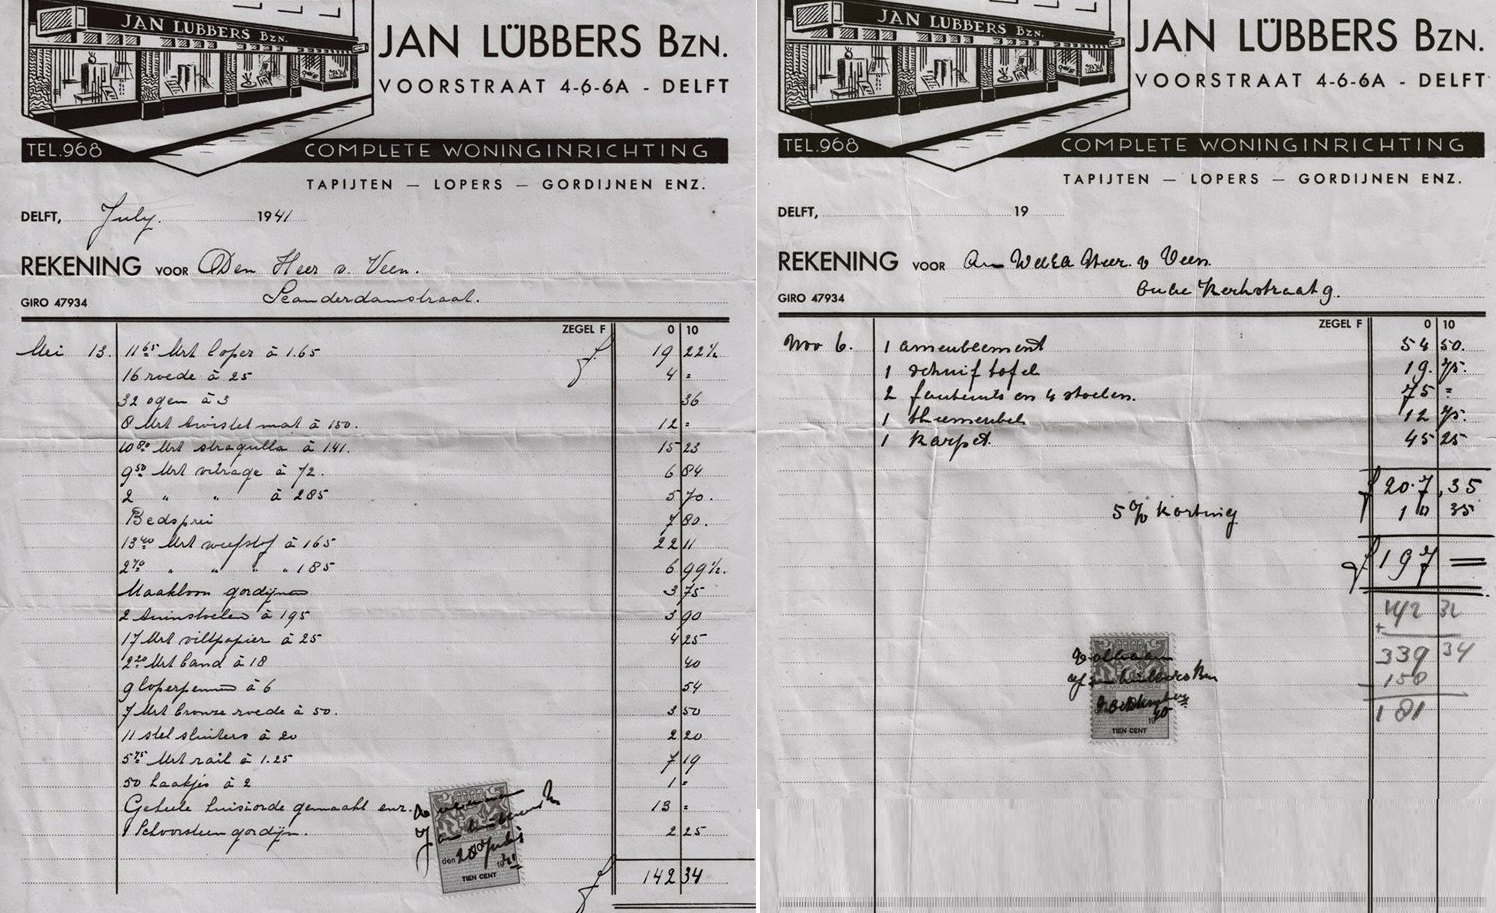 JAN LUBBERS BZN.
JAN LÜBBERS BZN.
VOORSTRAAT 4-6-6A - DELFT
TEL.968
COMPLETE WONINGINRICHTING
TAPIJTEN — LOPERS — GORDIJNEN ENZ.
DELFT, July. 1941
REKENING VOOR Den Heer v. Veen.
GIRO 47934
ZEGEL F 0 10
Mei 13. 11 65 Mrt loper à 1.65 f 19 22½
16 roede à 25 4 =
32 ogen à 3 36
8 Mrt mat à 150. 12 =
10 80 Mrt stragulla à 1.41. 15 23
9 50 Mrt vitrage à 72. 6 84
2 " " à 285 5 70.
Bedsprei 7 80.
13 40 Mrt weefstof à 165 22 11
2 70 " " " " 185 6 99½.
Maakloon gordijnen 3 75
2 tuinstoelen à 195 3 90
17 Mrt viltpapier à 25 4 25
2 20 Mrt band à 18 40
9 loperpennen à 6 54
7 Mrt bronze roede à 50. 3 50
11 stel sluiters à 20 2 20
5 75 Mrt rail à 1.25 7 19
50 haakjes à 2 1 =
Geheele huis in orde gemaakt enz. 13 =
1 Schoorsteen gordijn. 2 25
den 20 July 1941
TIEN CENT
f 142 34
JAN LUBBERS BZN.
JAN LÜBBERS BZN.
VOORSTRAAT 4-6-6A - DELFT
TEL.968
COMPLETE WONINGINRICHTING
TAPIJTEN — LOPERS — GORDIJNEN ENZ.
DELFT, 19
REKENING VOOR Den WelEd Heer. v Veen.
GIRO 47934 Oude Kerkstraat 9.
ZEGEL F 0 10
Nov 6. 1 ameublement 54 50.
1 schuif tafel 19. 75.
2 fauteuils en 4 stoelen. 75 =
1 theemeubel 12 75.
1 karpet. 45 25
f 207,35
5% korting 10 35
f 197 =
142 34
+
339 34
158
181
Voldaan
JE MAINTIENDRAI
40
TIEN CENT